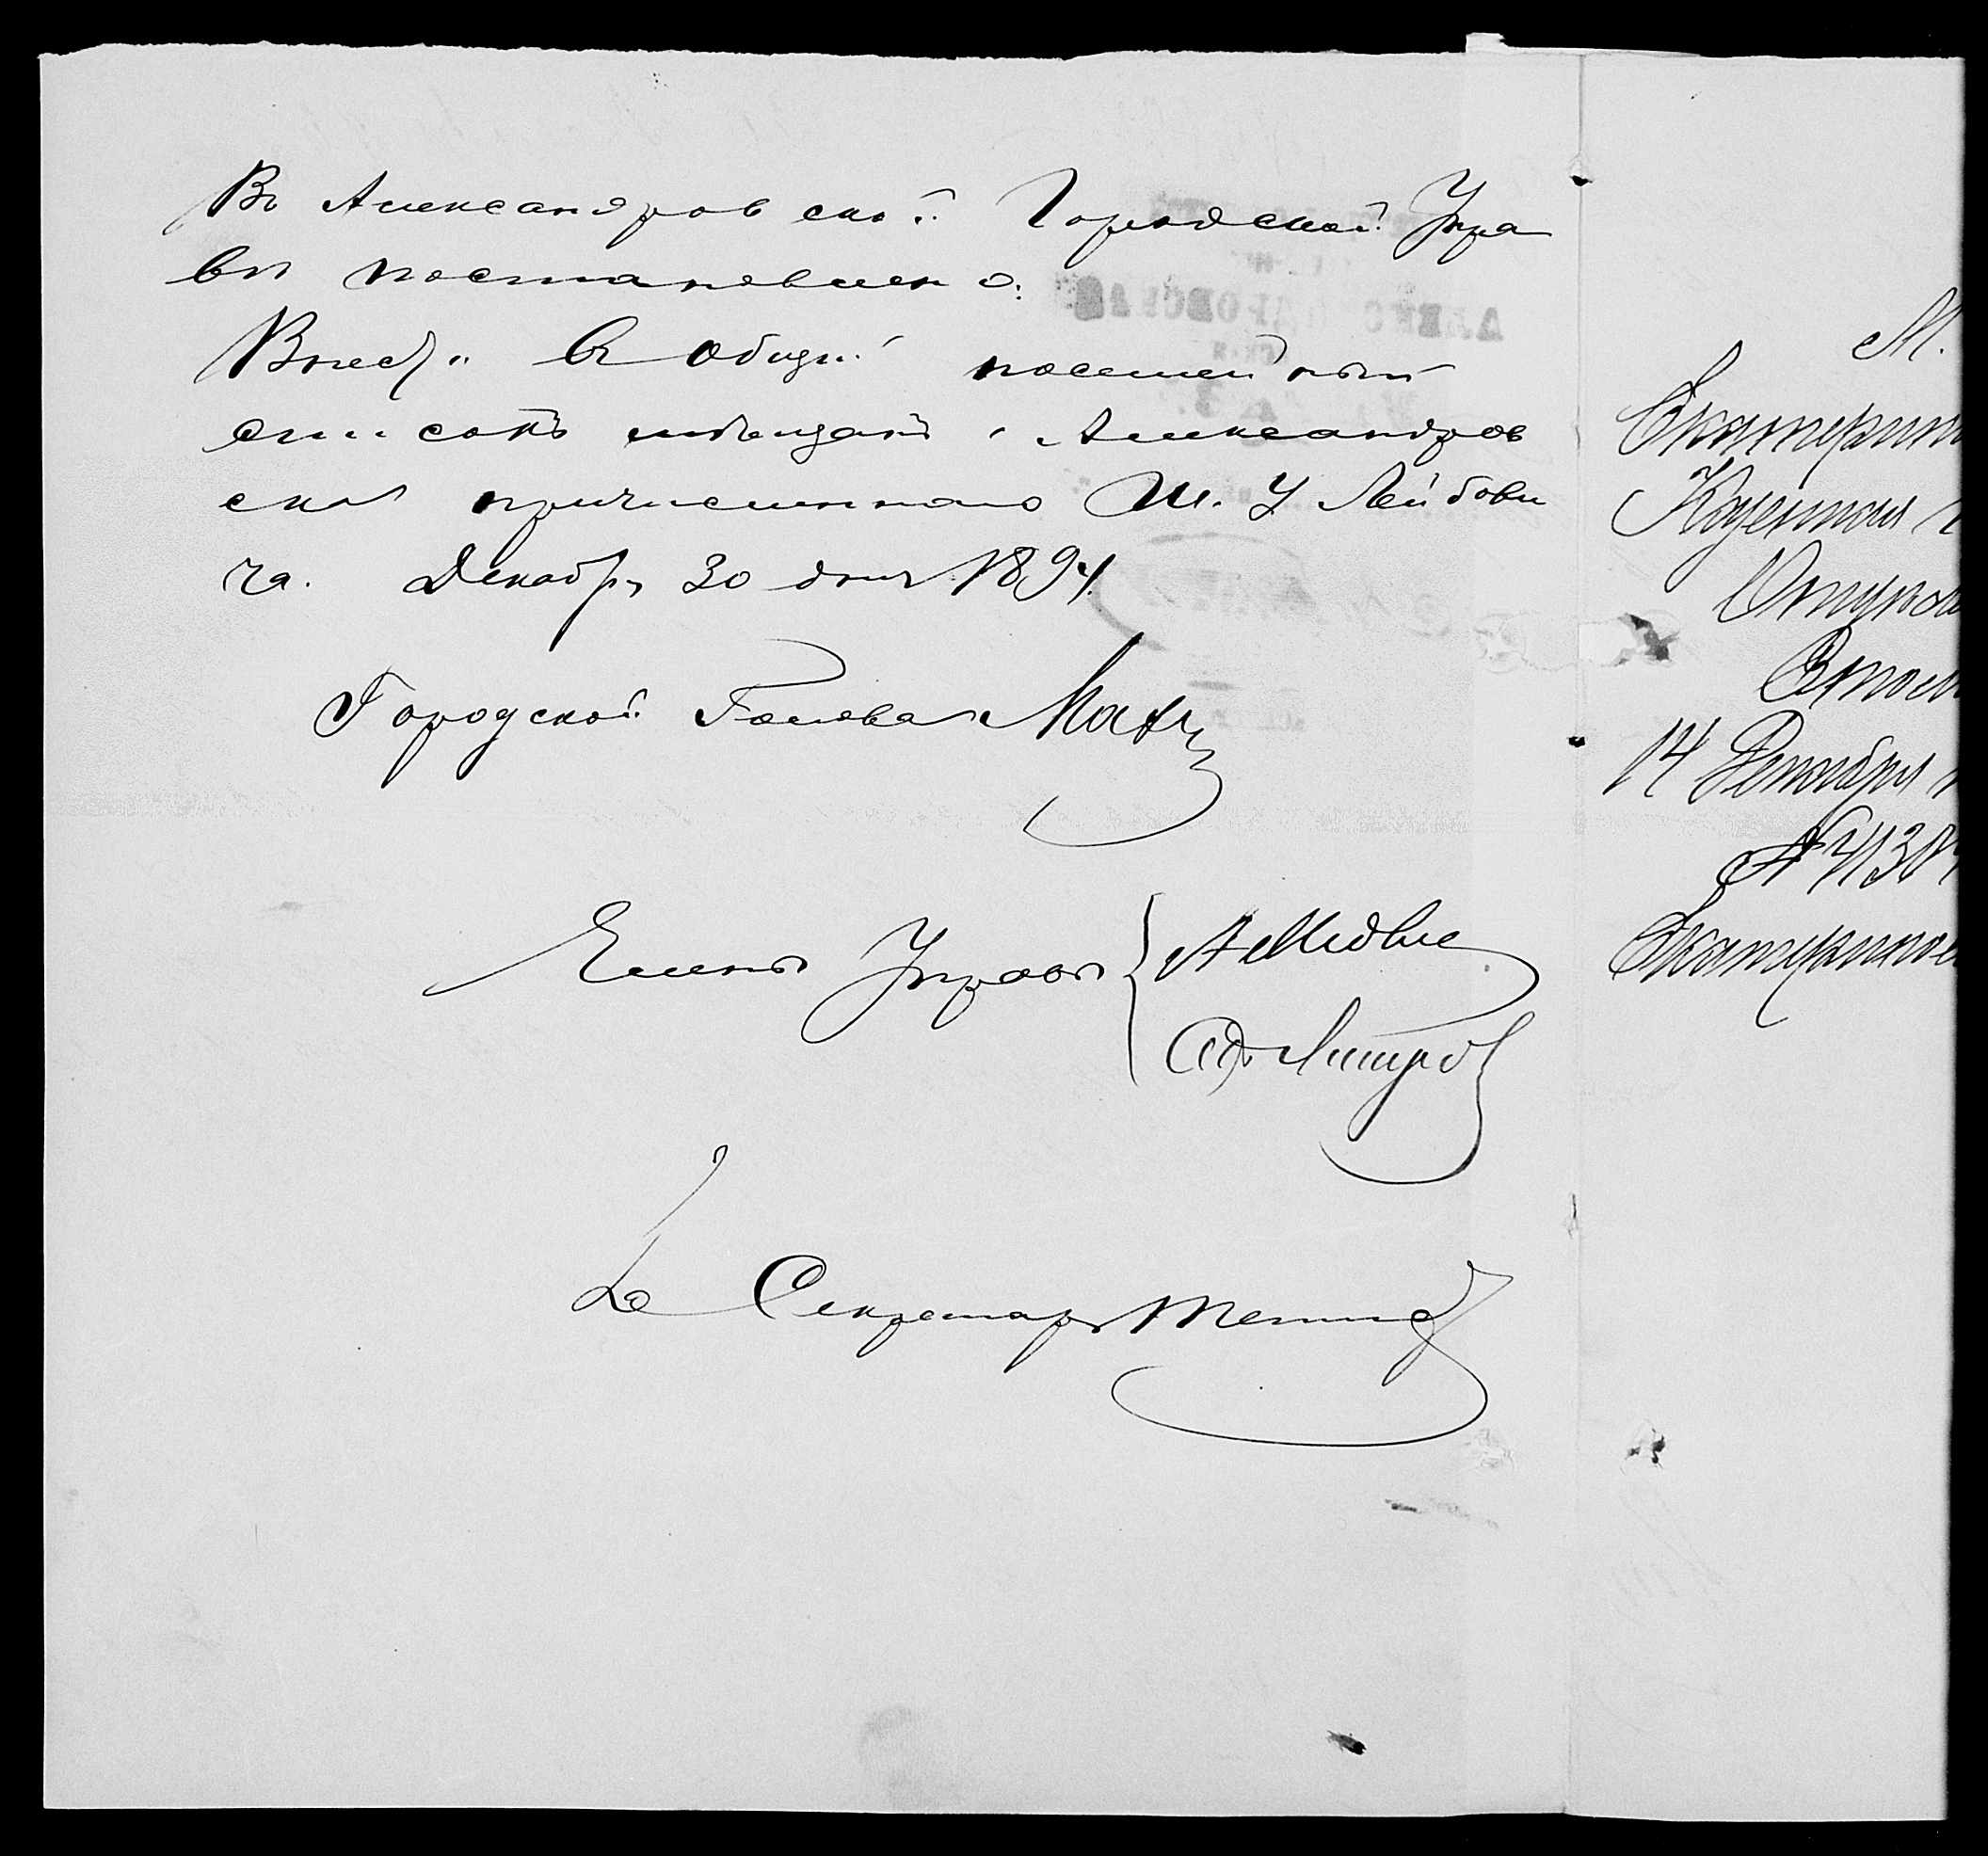 Въ Александровской Городской Упра
вѣ постановлено:
Внести въ общій посемейный
списокъ мѣщанъ г. Александров
ска причисленнаго Ш. У Лейбови
ча. Декабря 30 дня 1894.
Городской Голова
Члены Управы
Секретарь
М.
Екатерин
Казенная
Отдѣле
Столъ
14 Декабря
№ 4130
Екатеринос